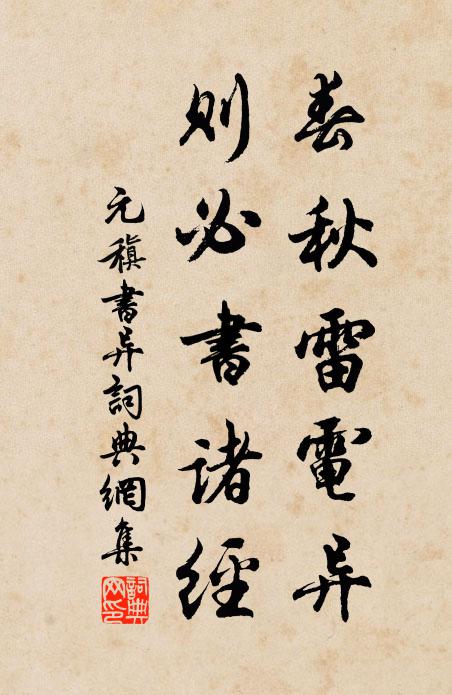 春秋雷電异
則必書諸經
元稹書异詞典網集
詞典
网印